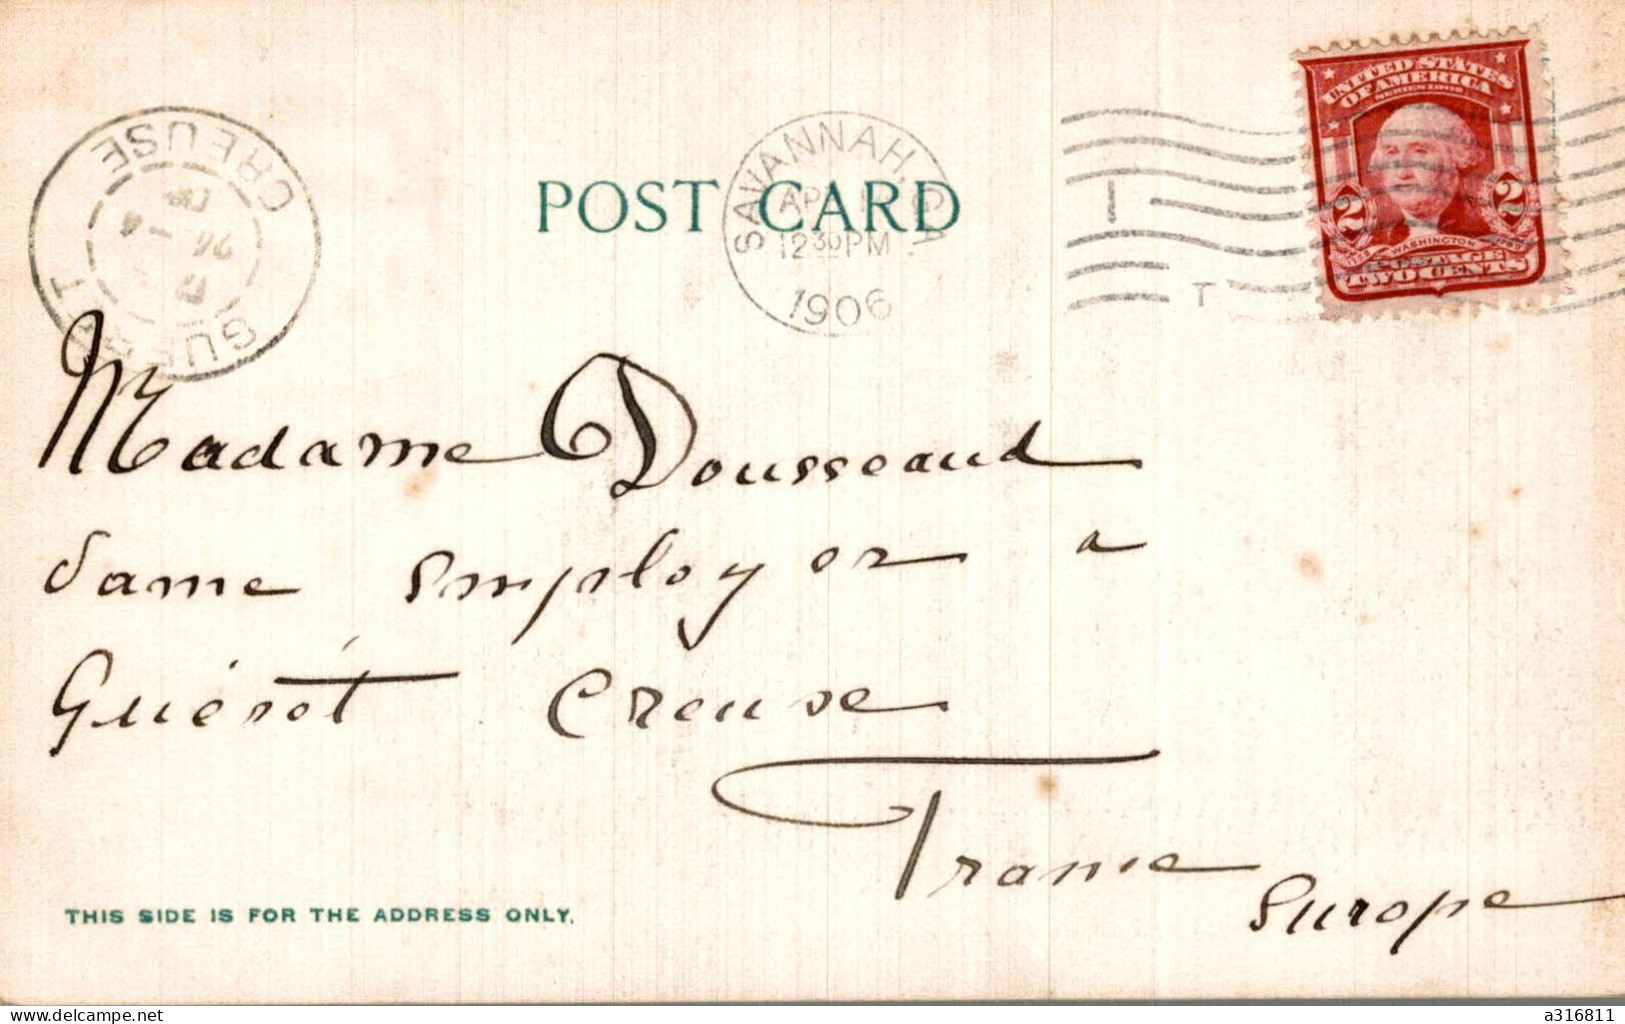 UNITED STATES
OF AMERICA
SERIES 1902
WASHINGTON
2 2
POSTAGE
TWO CENTS
CREUSE
SAVANNAH, GA.
12 30 PM
1906
T
POST CARD
Madame Dousseaud
dame Employer a
Guérét Creuse
France
Europe
THIS SIDE IS FOR THE ADDRESS ONLY.
delcampe.net
a316811